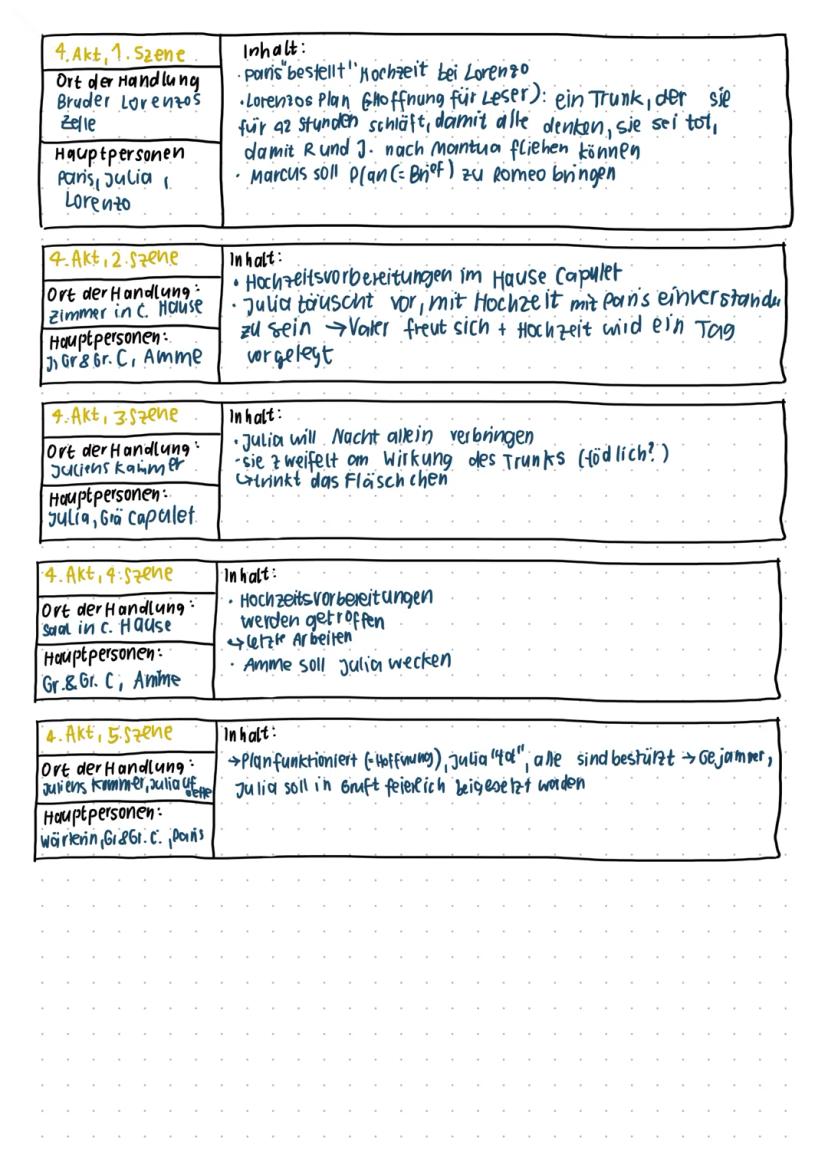 4. Akt, 1. Szene
Ort der Handlung
Bruder Lorenzos
Zelle
Hauptpersonen
Paris, Julia,
Lorenzo
Inhalt:
· Paris "bestellt" Hochzeit bei Lorenzo
· Lorenzos Plan (Hoffnung für Leser): ein Trunk, der sie
für 42 Stunden schläft, damit alle denken, sie sei tot,
damit R und J. nach Mantua fliehen können
· Marcus soll Plan (= Brief) zu Romeo bringen
4. Akt, 2. Szene
Ort der Handlung:
Zimmer in C. Hause
Hauptpersonen:
J, Gr & Gr. C, Amme
Inhalt:
· Hochzeitsvorbereitungen im Hause Capulet
· Julia täuscht vor, mit Hochzeit mit Paris einverstanden
zu sein → Vater freut sich + Hochzeit wird ein Tag
vorgelegt
4. Akt, 3. Szene
Ort der Handlung:
Juliens Kammer
Hauptpersonen:
Julia, Grä Capulet
Inhalt:
· Julia will Nacht allein verbringen
- sie zweifelt am Wirkung des Trunks (tödlich?)
↳ trinkt das Fläschchen
4. Akt, 4. Szene
Ort der Handlung:
Saal in C. Hause
Hauptpersonen:
Gr. & Gr. C, Amme
Inhalt:
· Hochzeitsvorbereitungen
werden getroffen
↳ letzte Arbeiten
· Amme soll Julia wecken
4. Akt, 5. Szene
Ort der Handlung:
Juliens Kammer, Julia auf
Hauptpersonen:
Wärterin, Gr & Gr. C., Paris
Inhalt:
→ Plan funktioniert (= Hoffnung), Julia "tot", alle sind bestürzt → Gejammer,
Julia soll in Gruft feierlich beigesetzt werden